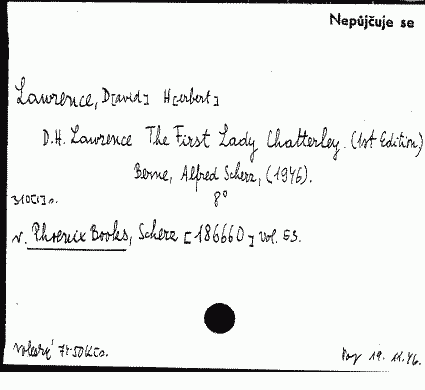 Nepůjčuje se
Lawrence, D[avid] H[erbert]
D.H. Lawrence The First Lady Chatterley. (1st Edition)
Berne, Alfred Scherz, (1946).
8°
v. Phoenix Books, Scherz [186660] vol. 53.
19.11.46.